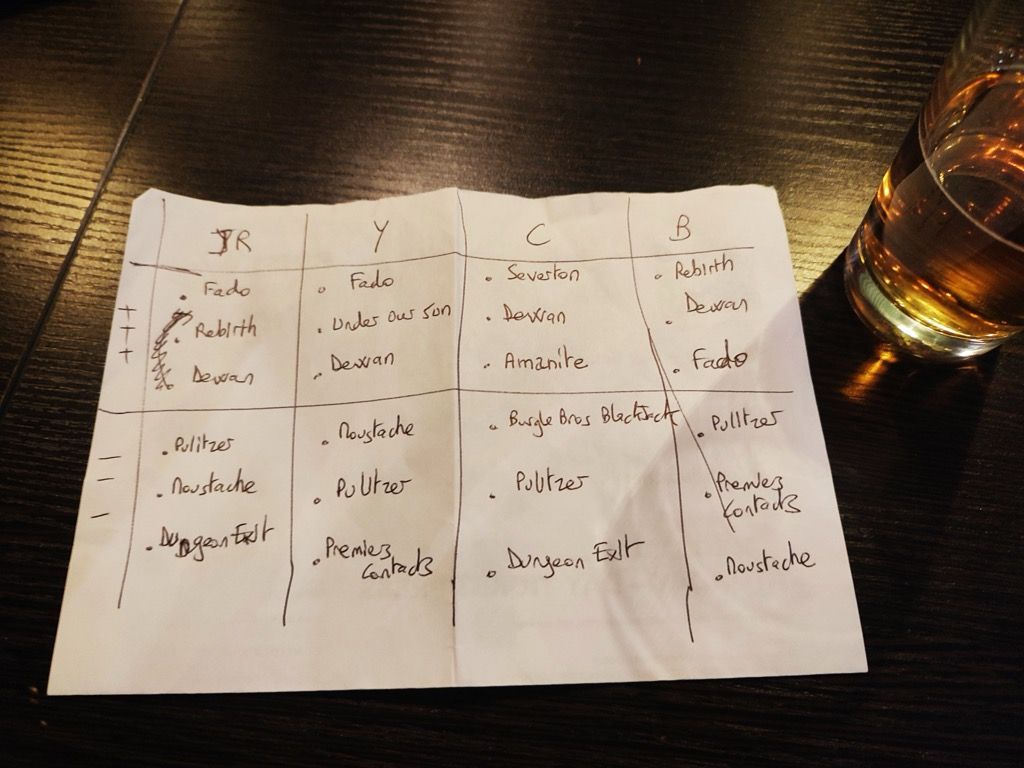 JR Y C B
Fado Fado Severton Rebirth
+ Rebirth Under our sun Dewan Dewan
+
+ Dewan Dewan Amanite Fado
Pulitzer Moustache Burgle Bros Blackjack Pulitzer
-
- Moustache Pulitzer Pulitzer Premiers
Contacts
-
Dungeon Exit Premiers Dungeon Exit Moustache
Contacts